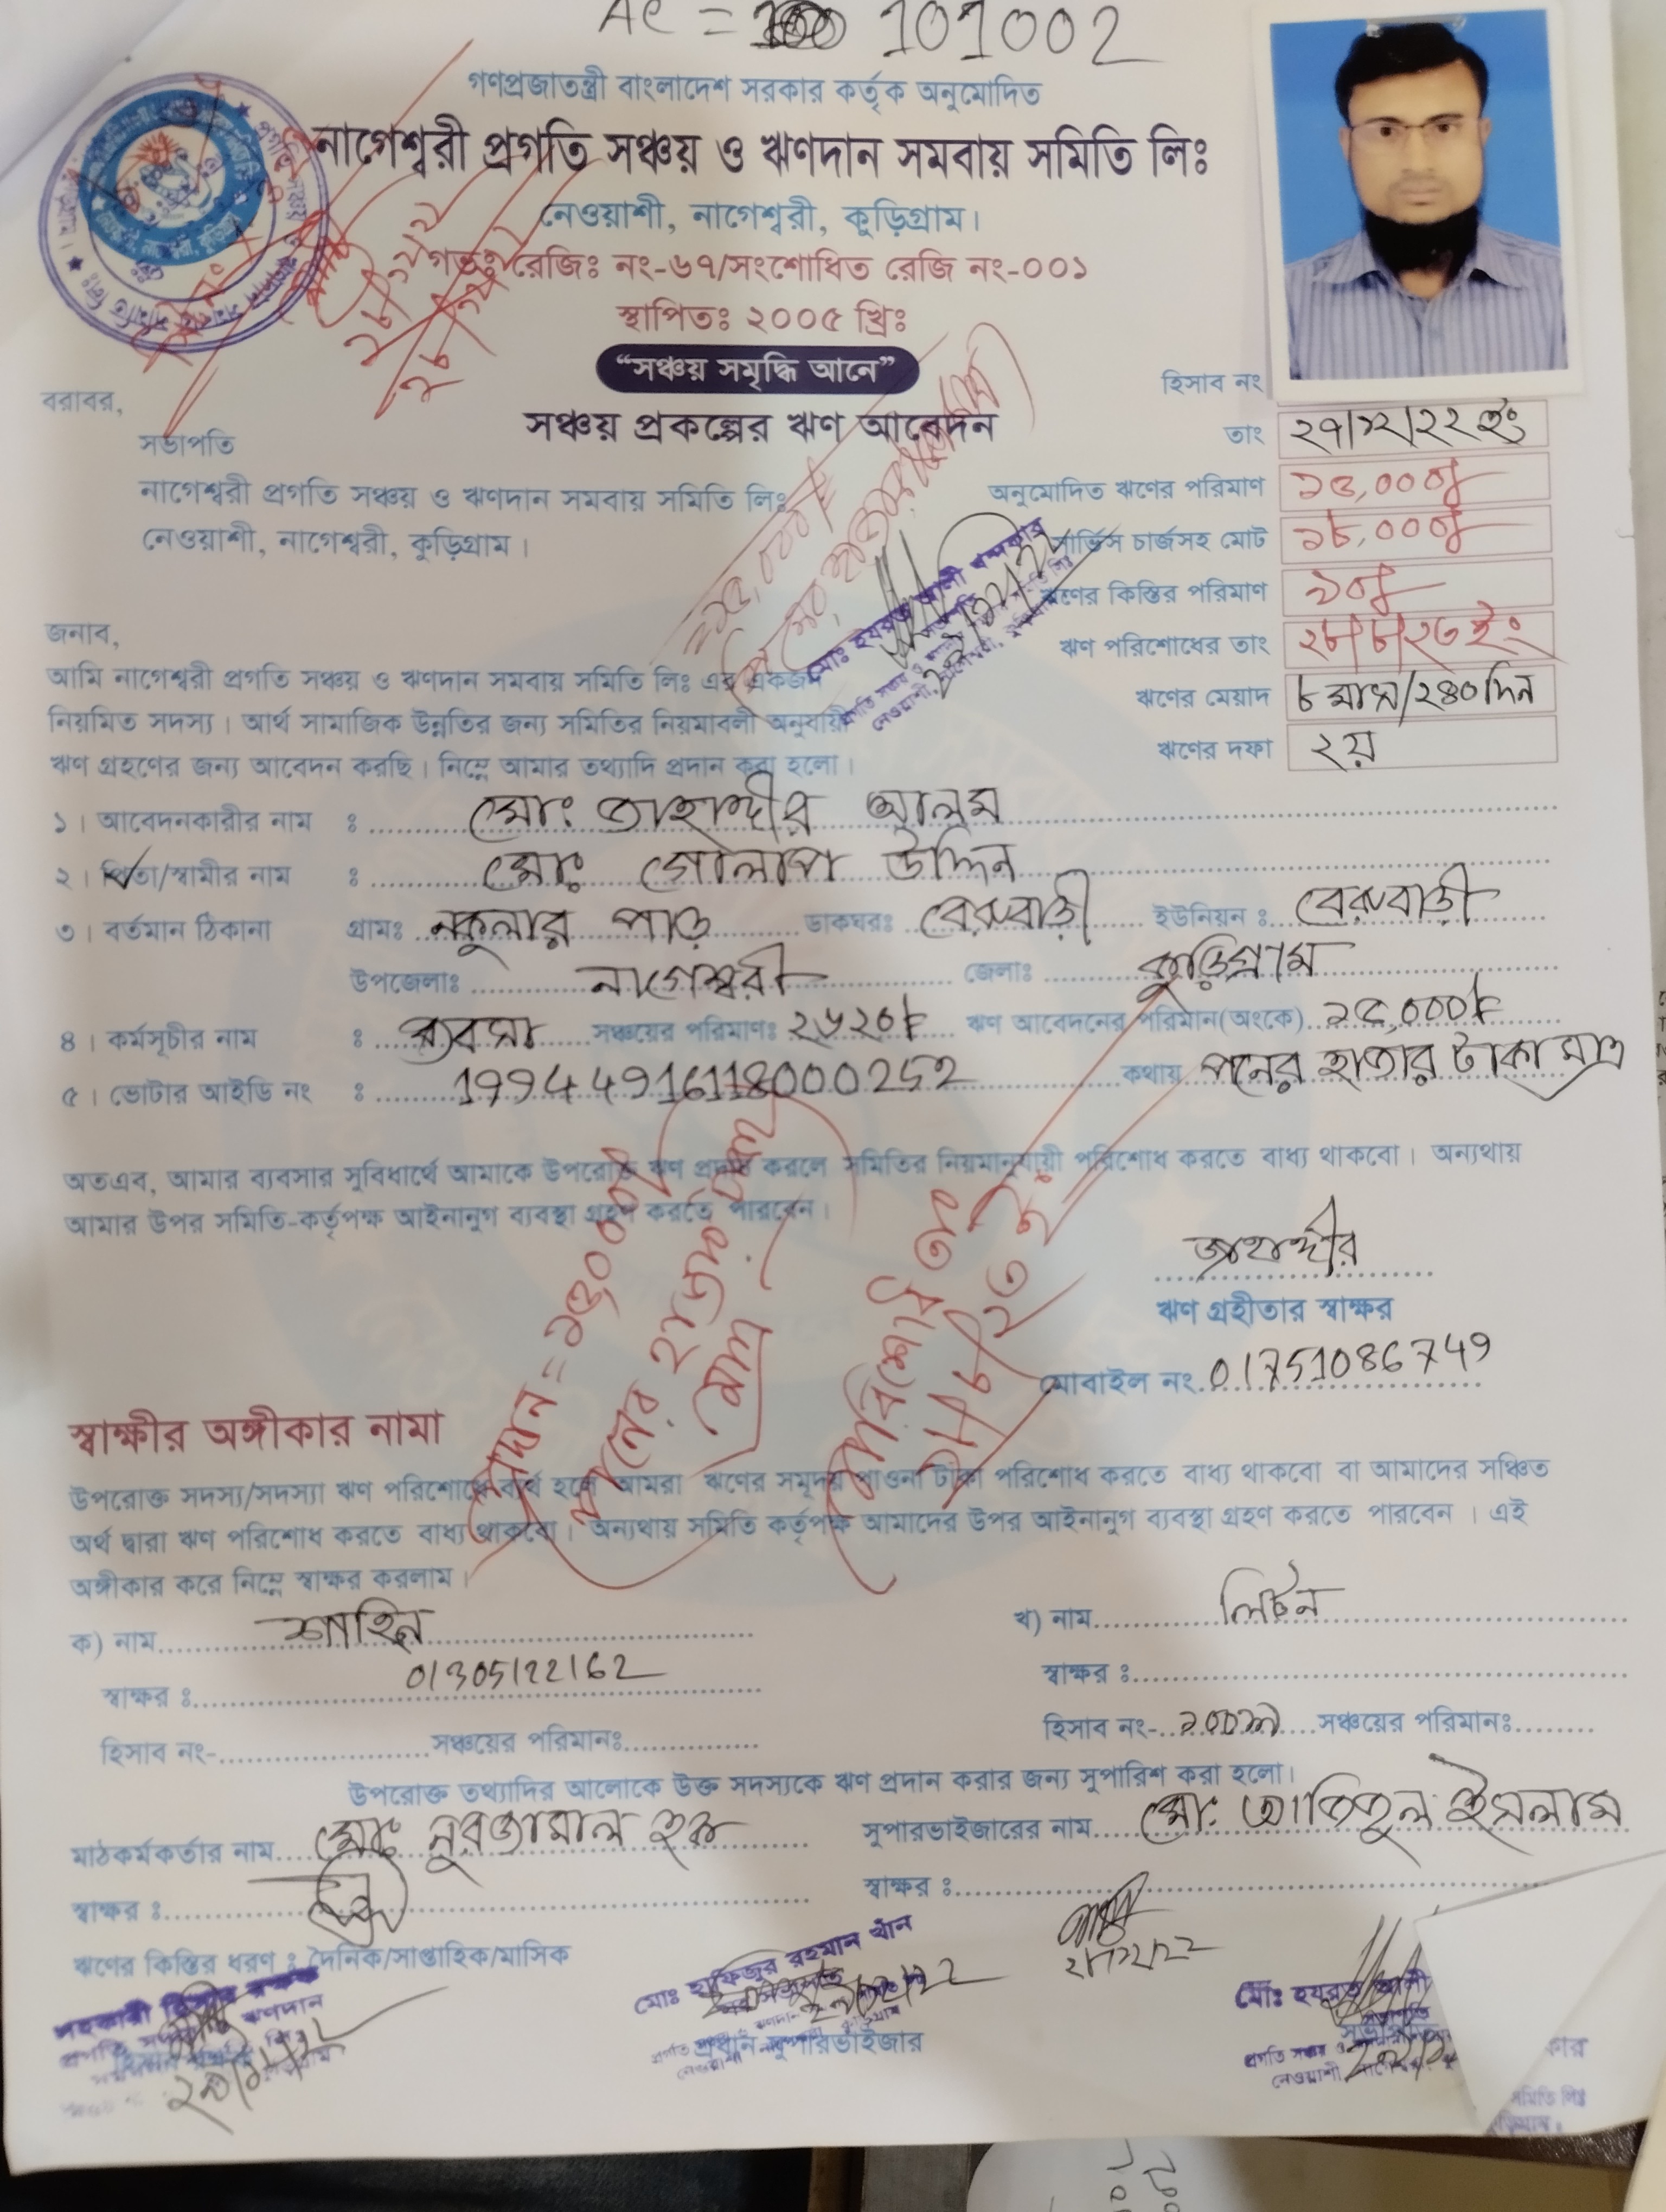 AC = 101002
গণপ্রজাতন্ত্রী বাংলাদেশ সরকার কর্তৃক অনুমোদিত
নাগেশ্বরী প্রগতি সঞ্চয় ও ঋণদান সমবায় সমিতি লিঃ
নেওয়াশী, নাগেশ্বরী, কুড়িগ্রাম।
গভঃ রেজিঃ নং-৬৭/সংশোধিত রেজি নং-০০১
স্থাপিতঃ ২০০৫ খ্রিঃ
“সঞ্চয় সমৃদ্ধি আনে”
সঞ্চয় প্রকল্পের ঋণ আবেদন
হিসাব নং
তাং ২৭/১২/২২ ইং
অনুমোদিত ঋণের পরিমাণ ১৫,০০০/-
সার্ভিস চার্জসহ মোট ১৮,০০০/-
ঋণের কিস্তির পরিমাণ
ঋণ পরিশোধের তাং ২৮/৮/২৩ ইং
ঋণের মেয়াদ ৮ মাস/২৪০ দিন
ঋণের দফা ২য়
বরাবর,
সভাপতি
নাগেশ্বরী প্রগতি সঞ্চয় ও ঋণদান সমবায় সমিতি লিঃ
নেওয়াশী, নাগেশ্বরী, কুড়িগ্রাম।
জনাব,
আমি নাগেশ্বরী প্রগতি সঞ্চয় ও ঋণদান সমবায় সমিতি লিঃ এর একজন
নিয়মিত সদস্য। আর্থ সামাজিক উন্নতির জন্য সমিতির নিয়মাবলী অনুযায়ী
ঋণ গ্রহণের জন্য আবেদন করছি। নিম্নে আমার তথ্যাদি প্রদান করা হলো।
১। আবেদনকারীর নাম ঃ মোঃ জাহাঙ্গীর আলম
২। পিতা/স্বামীর নাম ঃ মোঃ গোলাপ উদ্দিন
৩। বর্তমান ঠিকানা গ্রামঃ নকুলার পাড় ডাকঘরঃ বেরুবাড়ী ইউনিয়ন ঃ বেরুবাড়ী
উপজেলাঃ নাগেশ্বরী জেলাঃ কুড়িগ্রাম
৪। কর্মসূচীর নাম ঃ ব্যবসা সঞ্চয়ের পরিমাণঃ ২৬২০/- ঋণ আবেদনের পরিমান(অংকে) ১৫,০০০/-
৫। ভোটার আইডি নং ঃ 19944916118000252 কথায় পনের হাজার টাকা মাত্র
অতএব, আমার ব্যবসার সুবিধার্থে আমাকে উপরোক্ত ঋণ প্রদান করলে সমিতির নিয়মানুযায়ী পরিশোধ করতে বাধ্য থাকবো। অন্যথায়
আমার উপর সমিতি-কর্তৃপক্ষ আইনানুগ ব্যবস্থা গ্রহণ করতে পারবেন।
জাহাঙ্গীর
ঋণ গ্রহীতার স্বাক্ষর
মোবাইল নং 01751086749
স্বাক্ষীর অঙ্গীকার নামা
উপরোক্ত সদস্য/সদস্যা ঋণ পরিশোধে ব্যর্থ হলে আমরা ঋণের সমুদয় পাওনা টাকা পরিশোধ করতে বাধ্য থাকবো বা আমাদের সঞ্চিত
অর্থ দ্বারা ঋণ পরিশোধ করতে বাধ্য থাকবো। অন্যথায় সমিতি কর্তৃপক্ষ আমাদের উপর আইনানুগ ব্যবস্থা গ্রহণ করতে পারবেন । এই
অঙ্গীকার করে নিম্নে স্বাক্ষর করলাম।
ক) নাম শাহিন
খ) নাম লিটন
স্বাক্ষর ঃ 01305122162
স্বাক্ষর ঃ
হিসাব নং- সঞ্চয়ের পরিমানঃ
হিসাব নং- সঞ্চয়ের পরিমানঃ
উপরোক্ত তথ্যাদির আলোকে উক্ত সদস্যকে ঋণ প্রদান করার জন্য সুপারিশ করা হলো।
মাঠকর্মকর্তার নাম মোঃ নুরজামাল হক
সুপারভাইজারের নাম মোঃ আতিকুল ইসলাম
স্বাক্ষর ঃ
স্বাক্ষর ঃ
ঋণের কিস্তির ধরণ ঃ দৈনিক/সাপ্তাহিক/মাসিক
মোঃ হাফিজুর রহমান খাঁন
প্রধান সুপারভাইজার
মোঃ হযরত আলী